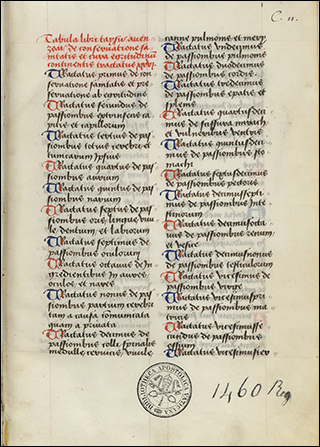 C. 11.
Tabula libri taysir auen
zoar de conseruatione sa
nitatis et cura egritudinum
continentis tractatus
Tractatus primus de con
seruatione sanitatis et pre
seruatione ab egritudinibus
Tractatus secundus de
passionibus extrinsecis ca
pitis et capillorum
Tractatus tertius de pas
sionibus totius cerebri et
ipsius
Tractatus quartus de pas
sionibus aurium
Tractatus quintus de pas
sionibus narium
Tractatus sextus de pas
sionibus oris lingue uuu
le dentium et labiorum
Tractatus septimus de
passionibus oculorum
Tractatus octauus de in
gredientibus in aures
oculos et nares
Tractatus nonus de pas
sionibus partium cerebri
tam a causa
quam a priuata
Tractatus decimus de
passionibus colli spinalis
medulle
pulmonis et
Tractatus undecimus
de passionibus pulmonis
Tractatus duodecimus
de passionibus cordis
Tractatus tredecimus
de passionibus epatis et
splenis
Tractatus quartusdeci
mus de mirach
et uulneribus uentris
Tractatus quintusdeci
mus de passionibus sto
machi
Tractatus sextusdecimus
de passionibus pectoris
Tractatus decimussepti
mus de passionibus inte
stinorum
Tractatus decimusocta
uus de passionibus renum
et uesice
Tractatus decimusnonus
de passionibus testiculorum
Tractatus uicesimus de
passionibus uirge
Tractatus uicesimuspri
mus de passionibus ma
tricis
Tractatus uicesimusse
cundus de passionibus
ossium
Tractatus uicesimus
BIBLIOTHECA APOSTOLICA VATICANA
1460 Reg